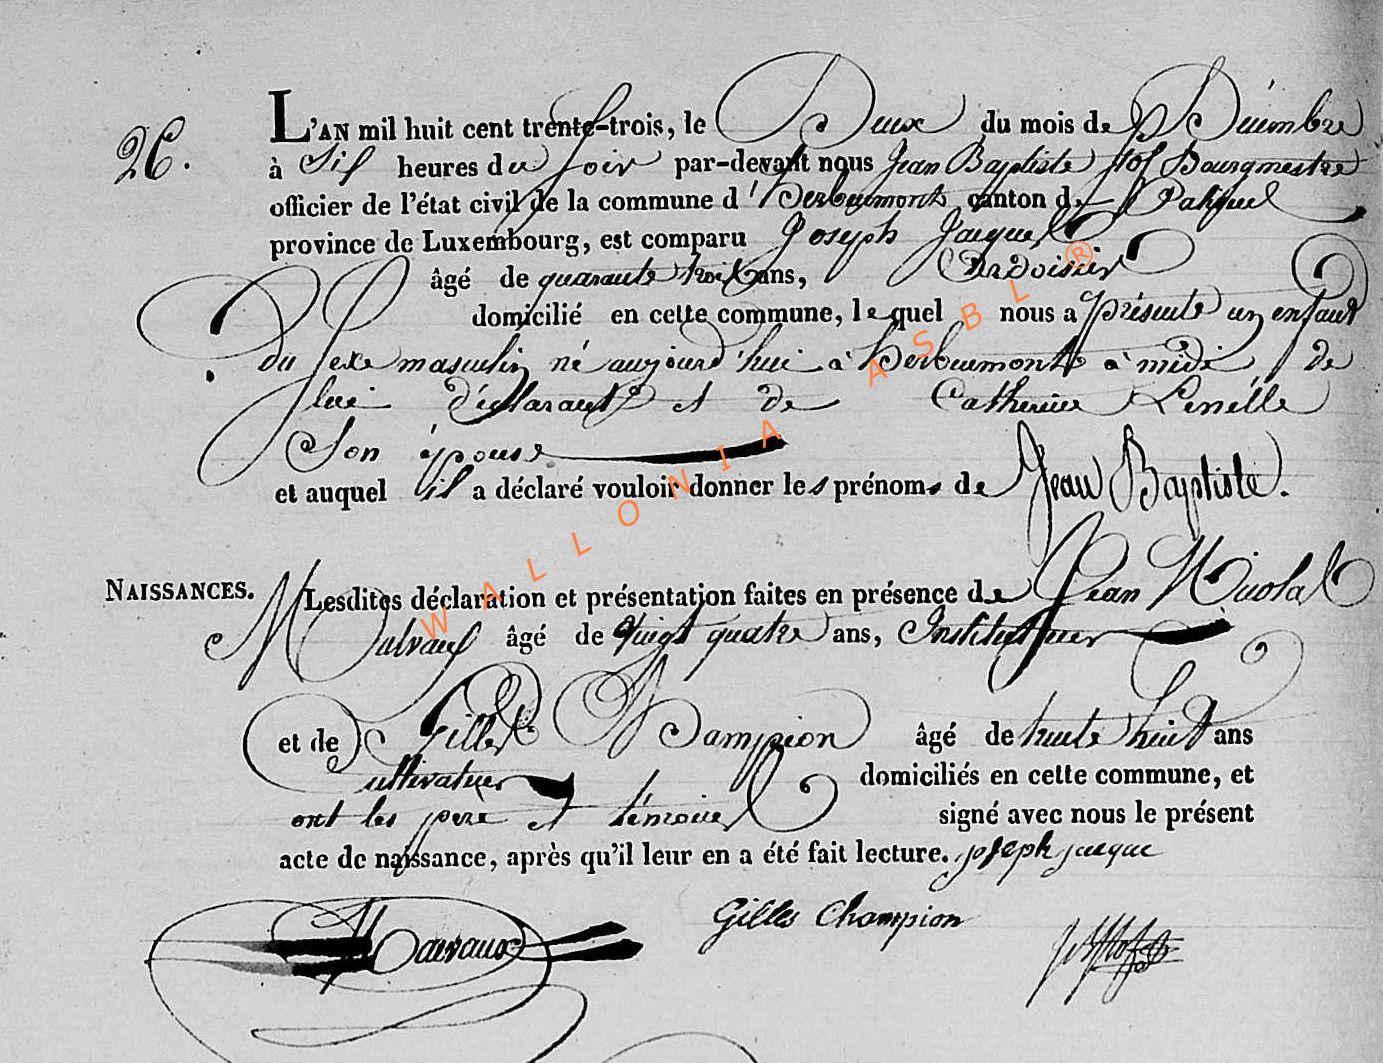 26.
L'AN mil huit cent trente-trois, le Deux du mois de Décembre
à Six heures du soir par-devant nous Jean Baptiste Bourgmestre
officier de l'état civil de la commune d'herbeumont canton de Paliseul
province de Luxembourg, est comparu Joseph Jacques
âgé de quarante trois ans, Ardoisier
domicilié en cette commune, lequel nous a présenté un enfant
du sexe masculin né aujourd'hui à herbeumont à midi de
lui déclarant et de Catherine
Son épouse
et auquel il a déclaré vouloir donner les prénoms de Jean Baptiste.
NAISSANCES.
Lesdites déclaration et présentation faites en présence de Jean Nicolas
âgé de vingt quatre ans, Instituteur
et de Gilles Champion âgé de trente huit ans
cultivateur domiciliés en cette commune, et
ont les pere et témoins signé avec nous le présent
acte de naissance, après qu'il leur en a été fait lecture. joseph jacque
Gilles Champion
WALLONIA ASBL ®